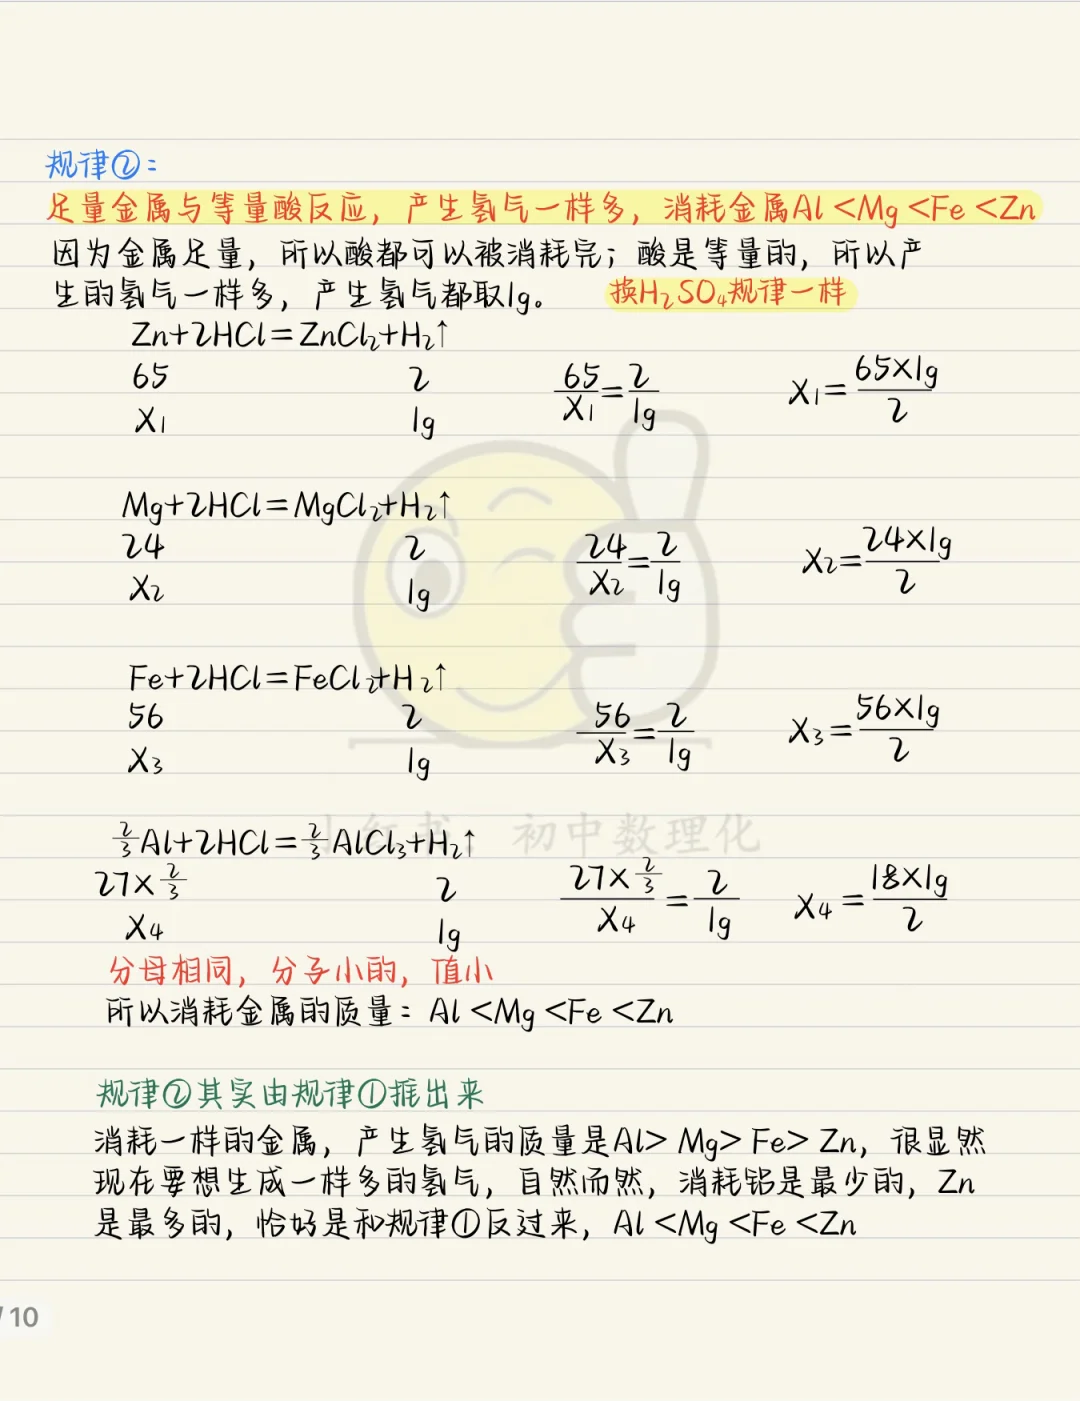 规律②:
足量金属与等量酸反应，产生氢气一样多，消耗金属Al<Mg<Fe<Zn
因为金属足量，所以酸都可以被消耗完；酸是等量的，所以产
生的氢气一样多，产生氢气都取1g。 换H₂SO₄规律一样
Zn+2HCl=ZnCl₂+H₂↑
65 2 65/X₁=2/1g X₁=65×1g/2
X₁ 1g
Mg+2HCl=MgCl₂+H₂↑
24 2 24/X₂=2/1g X₂=24×1g/2
X₂ 1g
Fe+2HCl=FeCl₂+H₂↑
56 2 56/X₃=2/1g X₃=56×1g/2
X₃ 1g
小红书：初中数理化
2/3Al+2HCl=2/3AlCl₃+H₂↑
27×2/3 2 27×2/3/X₄=2/1g X₄=18×1g/2
X₄ 1g
分母相同，分子小的，值小
所以消耗金属的质量：Al<Mg<Fe<Zn
规律②其实由规律①推出来
消耗一样的金属，产生氢气的质量是Al>Mg>Fe>Zn，很显然
现在要想生成一样多的氢气，自然而然，消耗铝是最少的，Zn
是最多的，恰好是和规律①反过来，Al<Mg<Fe<Zn
/10